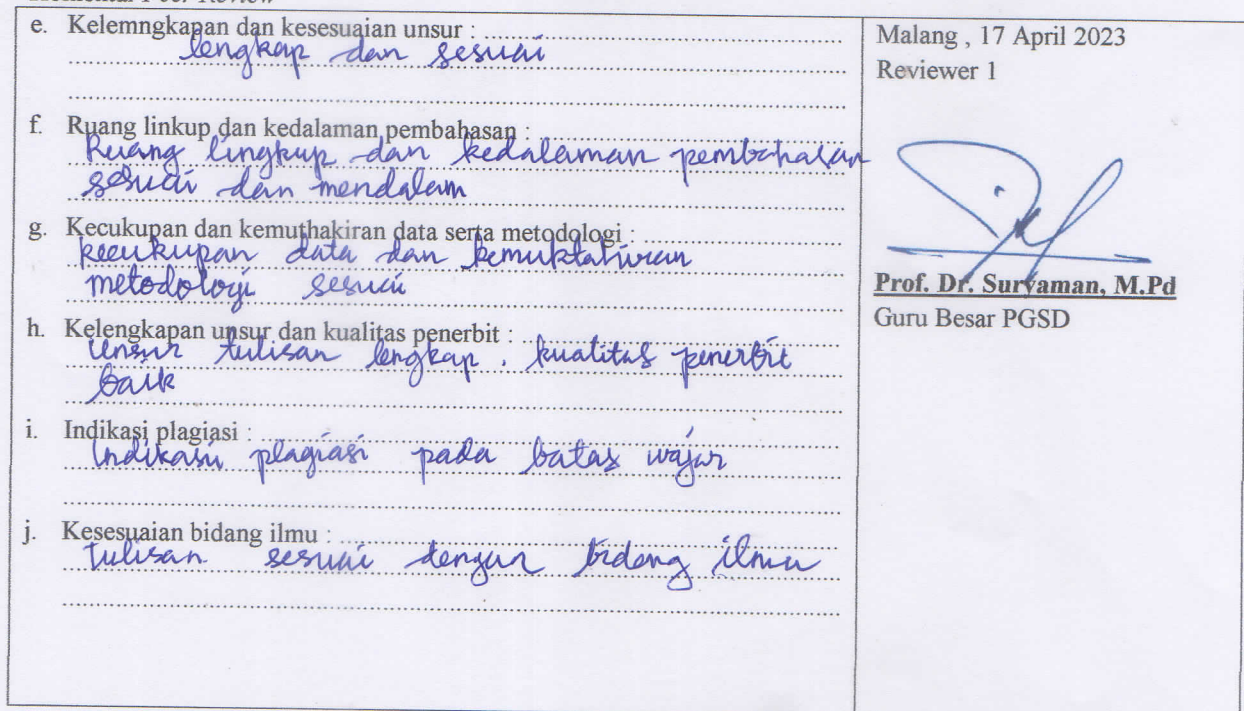 Komentar Peer Review
e. Kelemngkapan dan kesesuaian unsur :
lengkap dan sesuai
f. Ruang linkup dan kedalaman pembahasan :
Ruang lingkup dan kedalaman pembahasan
sesuai dan mendalam
g. Kecukupan dan kemuthakiran data serta metodologi :
kecukupan data dan kemuktahiran
metodologi sesuai
h. Kelengkapan unsur dan kualitas penerbit :
Unsur tulisan lengkap. kualitas penerbit
baik
i. Indikasi plagiasi :
Indikasi plagiasi pada batas wajar
j. Kesesuaian bidang ilmu :
tulisan sesuai dengan bidang ilmu
Malang , 17 April 2023
Reviewer 1
Prof. Dr. Suryaman, M.Pd
Guru Besar PGSD